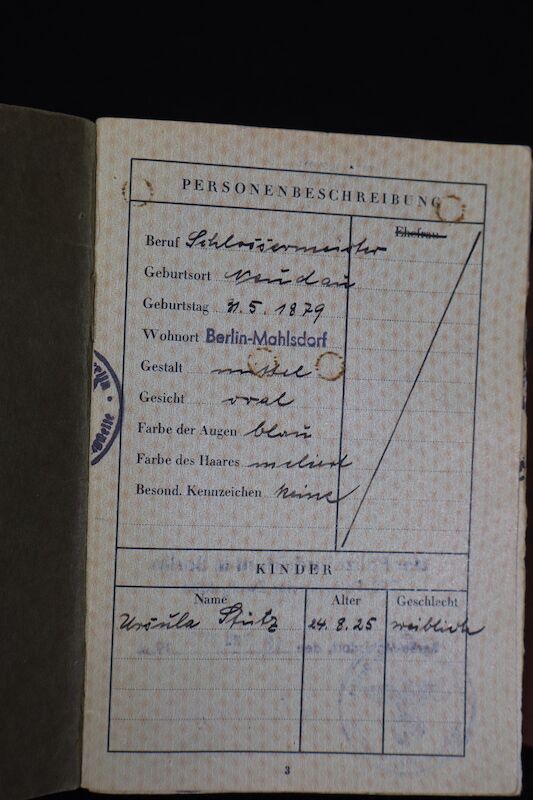 PERSONENBESCHREIBUNG
Ehefrau
Beruf Schlossermeister
Geburtsort Neudau
Geburtstag 31.5.1879
Wohnort Berlin-Mahlsdorf
Gestalt mittel
Gesicht oval
Farbe der Augen blau
Farbe des Haares meliert
Besond. Kennzeichen keine
KINDER
Name Alter Geschlecht
Ursula Stutz 24.8.25 weiblich
3